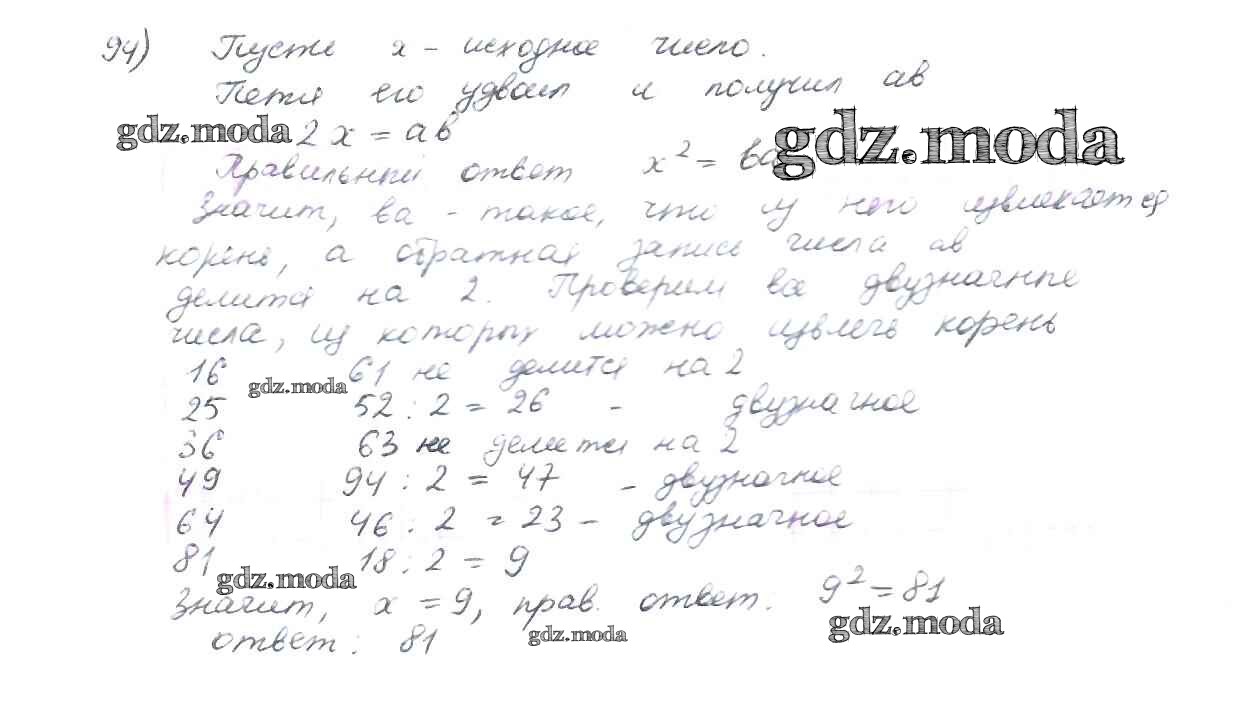 94) Пусть x - исходное число.
Петя его удвоил и получил ав
gdz.moda 2x = ав gdz.moda
Правильный ответ x² = ва
Значит, ва - такое, что из него извлекается
корень, а обратная запись числа ав
делится на 2. Проверим все двузначные
числа, из которых можно извлечь корень
16 gdz.moda 61 не делится на 2
25 52 : 2 = 26 - двузначное
36 63 не делится на 2
49 94 : 2 = 47 - двузначное
64 46 : 2 = 23 - двузначное
81 gdz.moda 18 : 2 = 9
Значит, x = 9, прав. ответ: 9² = 81
ответ: 81 gdz.moda gdz.moda